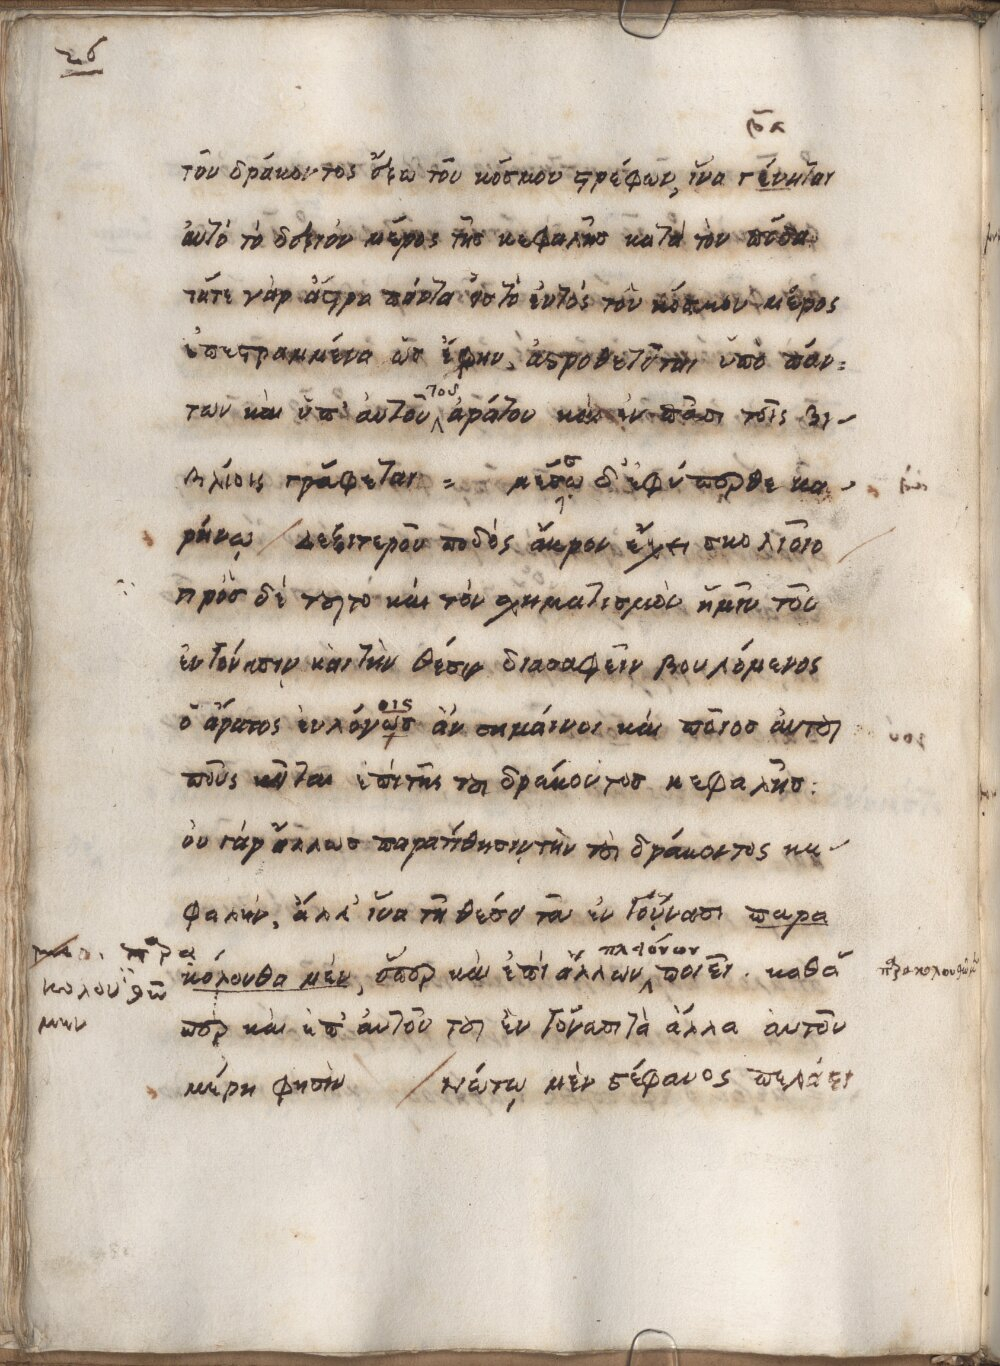 τοῦ δράκοντος ἔξω τοῦ κόσμου στρέφων, ἵνα γένηται
αὐτὸ τὸ δεξιὸν μέρος τῆς κεφαλῆς κατὰ τὸν πόδα
γὰρ ἄστρα πάντα εἰς τὸ ἐντὸς τοῦ κόσμου μέρος
ἐπεστραμμένα ὡς ἔφην, ἀστροθετεῖται ὑπὸ πάν=
των καὶ ὑπ' αὐτοῦ τοῦ ἀράτου καὶ ἐν πᾶσι τοῖς βι-
βλίοις γράφεται = μέσσῳ δ' ἐφύπερθε κα-
ρήνῳ / δεξιτεροῦ ποδὸς ἄκρον ἔχει σκολιοῖο
πρὸς δὲ τούτο καὶ τὸν σχηματισμὸν ἡμῖν τοῦ
ἐν γόνασιν καὶ τὴν θέσιν διασαφεῖν βουλόμενος
ὁ ἄρατος εὐλόγως ἂν σημαίνοι καὶ ποῖος αὐτοῦ
ποὺς κεῖται ἐπὶ τῆς τοῦ δράκοντος κεφαλῆς:
οὐ γὰρ ἄλλως παρατίθησιν τὴν τοῦ δράκοντος κε-
φαλήν, ἀλλ' ἵνα τῇ θέσει τοῦ ἐν γούνασι παρα
κόλουθα μὲν, ὅπερ καὶ ἐπὶ ἄλλων πλειόνων ποιεῖ. καθά
περ καὶ ἐπ' αὐτοῦ τοῦ ἐν γόνασι τὰ ἄλλα αὐτοῦ
μέρη φησὶν / Νώτῳ μὲν στέφανος πελάει
παρα
κολουθῶ
μεν
παρακολουθῶμεν